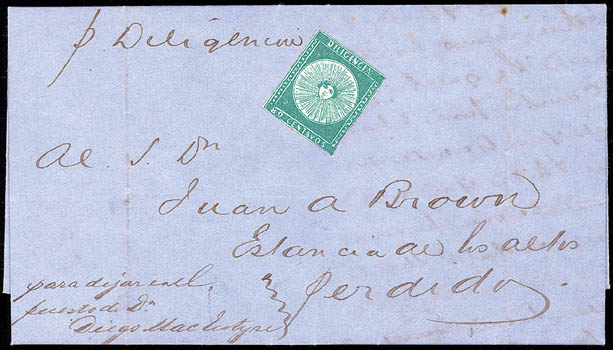 p Diligencia
DILIGENCIA
80 CENTAVOS
Al S. Dn
Juan A Brown
Estancia de los altos
Perdido
para dejar en el
puesto de Dn
Diego MacEntyre